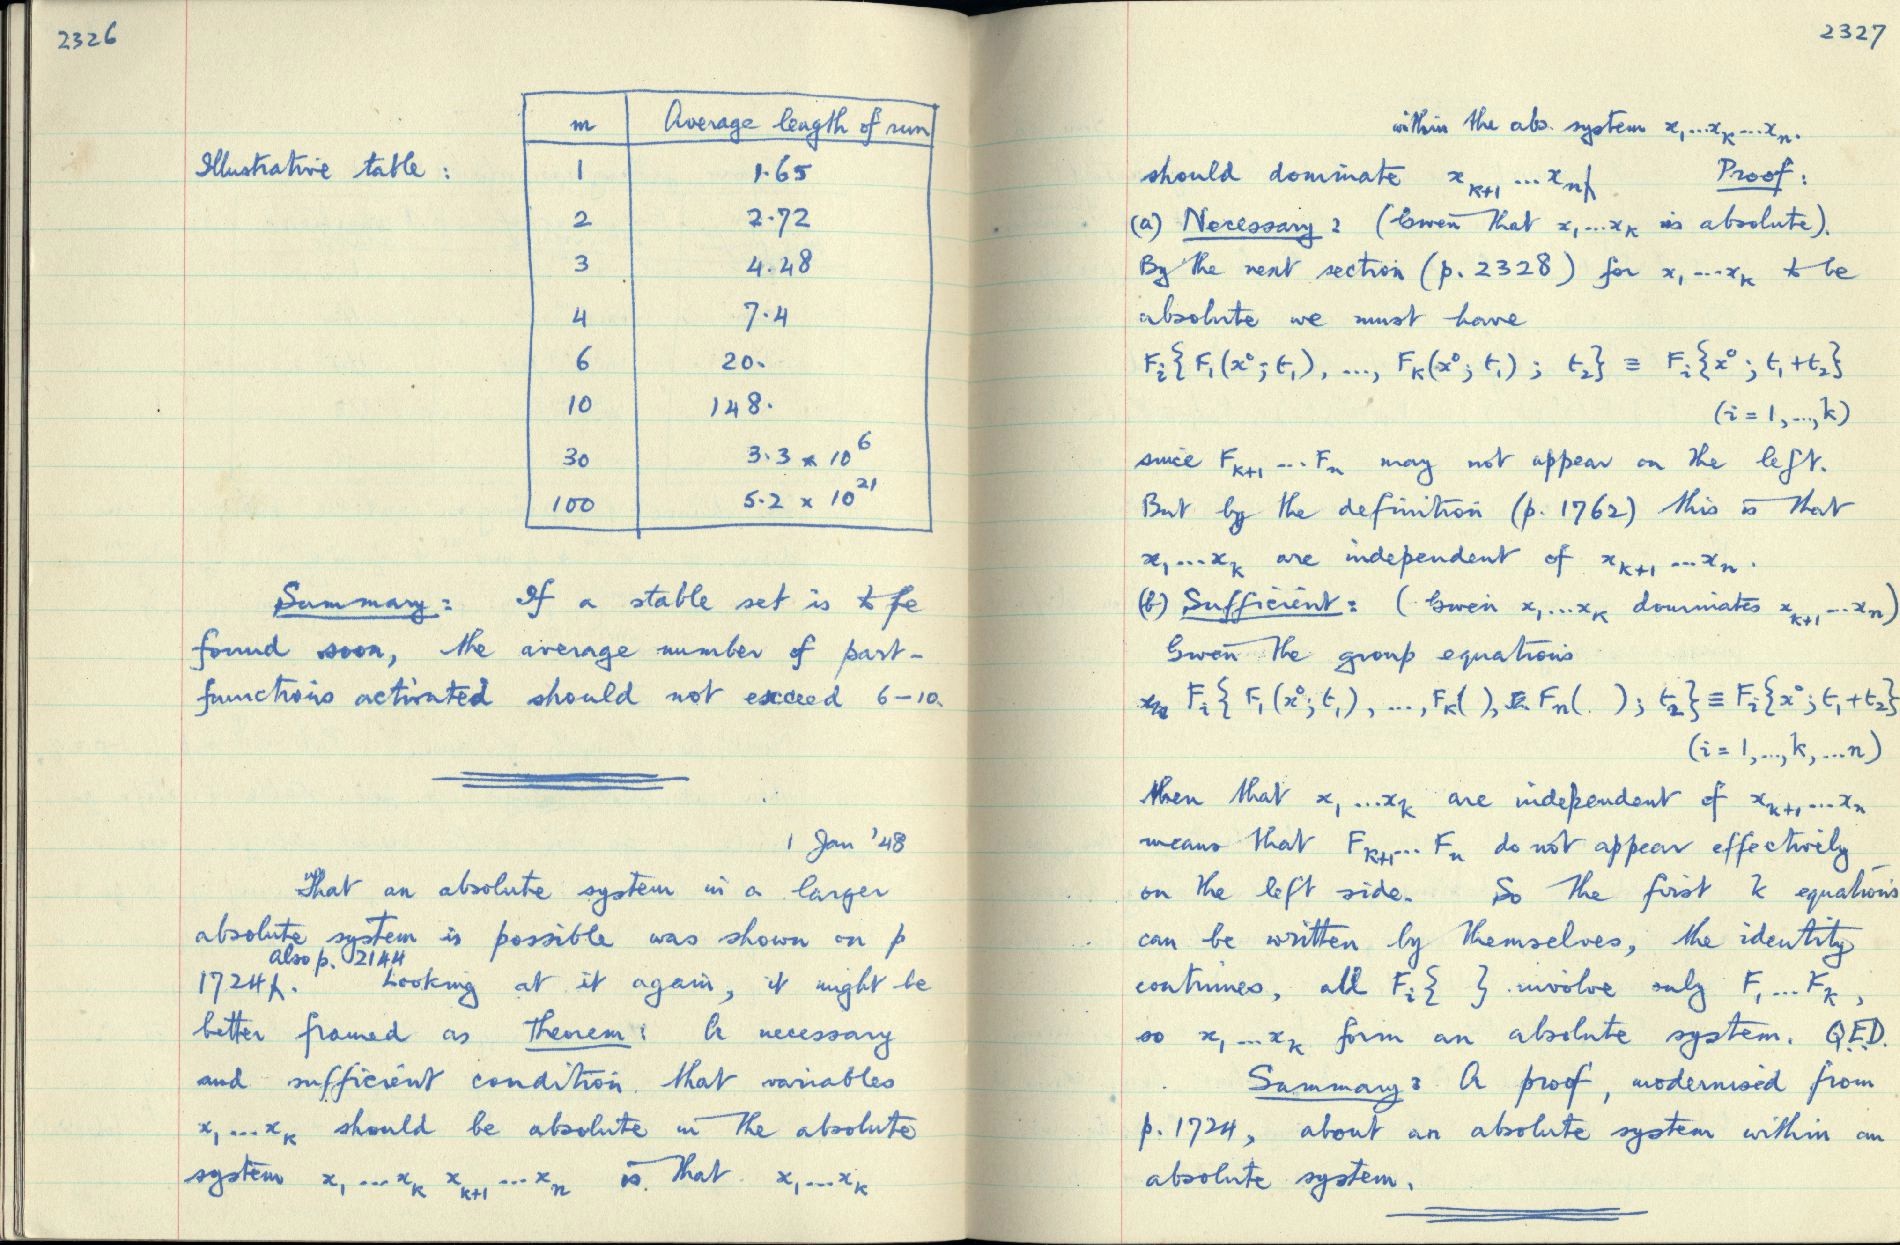 2326
m Average length of run
Illustrative table : 1 1.65
2 2.72
3 4.48
4 7.4
6 20.
10 148.
30 3.3 × 10⁶
100 5.2 × 10²¹
Summary: If a stable set is to be
found soon, the average number of part-
functions activated should not exceed 6–10.
1 Jan '48
That an absolute system in a larger
absolute system is possible was shown on p
also p. 2144
1724. Looking at it again, it might be
better framed as Theorem: A necessary
and sufficient condition that variables
x₁...xₖ should be absolute in the absolute
system x₁...xₖ xₖ₊₁...xₙ is that x₁...xₖ
2327
within the abs. system x₁...xₖ...xₙ.
should dominate xₖ₊₁...xₙ Proof:
(a) Necessary: (Given that x₁...xₖ is absolute).
By the next section (p. 2328) for x₁...xₖ to be
absolute we must have
Fᵢ{F₁(x⁰; t₁), ..., Fₖ(x⁰; t₁); t₂} ≡ Fᵢ{x⁰; t₁+t₂}
(i = 1,...,k)
since Fₖ₊₁...Fₙ may not appear on the left.
But by the definition (p. 1762) this is that
x₁...xₖ are independent of xₖ₊₁...xₙ.
(b) Sufficient: (Given x₁...xₖ dominates xₖ₊₁...xₙ)
Given the group equations
Fᵢ{F₁(x⁰; t₁), ..., Fₖ( ), Fₙ( ); t₂} ≡ Fᵢ{x⁰; t₁+t₂}
(i = 1,...,k,...n)
then that x₁...xₖ are independent of xₖ₊₁...xₙ
means that Fₖ₊₁...Fₙ do not appear effectively
on the left side. So the first k equations
can be written by themselves, the identity
continues, all Fᵢ{ } involve only F₁...Fₖ,
so x₁...xₖ form an absolute system. Q.E.D.
Summary: A proof, modernised from
p. 1724, about an absolute system within an
absolute system.